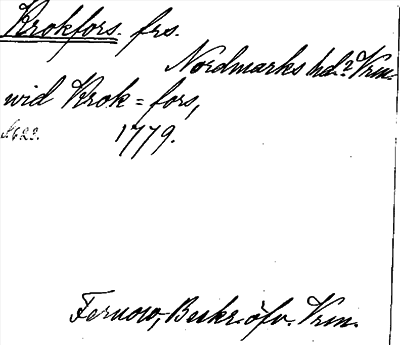 Krokfors. frs.
Nordmarks hd? Vrm.
wid Krok=fors,
S. 622. 1779.
Fernow, Beskr. öfv. Vrm.